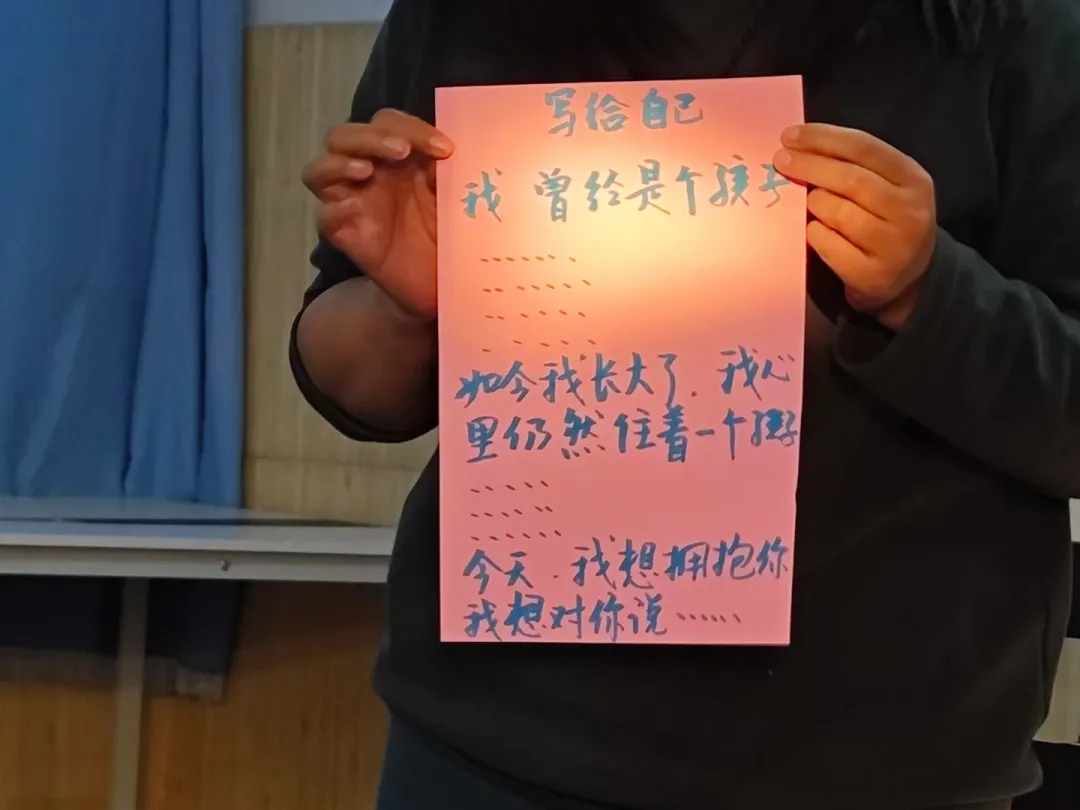 写给自己
我曾经是个孩子
……
……
……
……
如今我长大了,我心
里仍然住着一个孩子
……
……
……
今天,我想拥抱你
我想对你说……